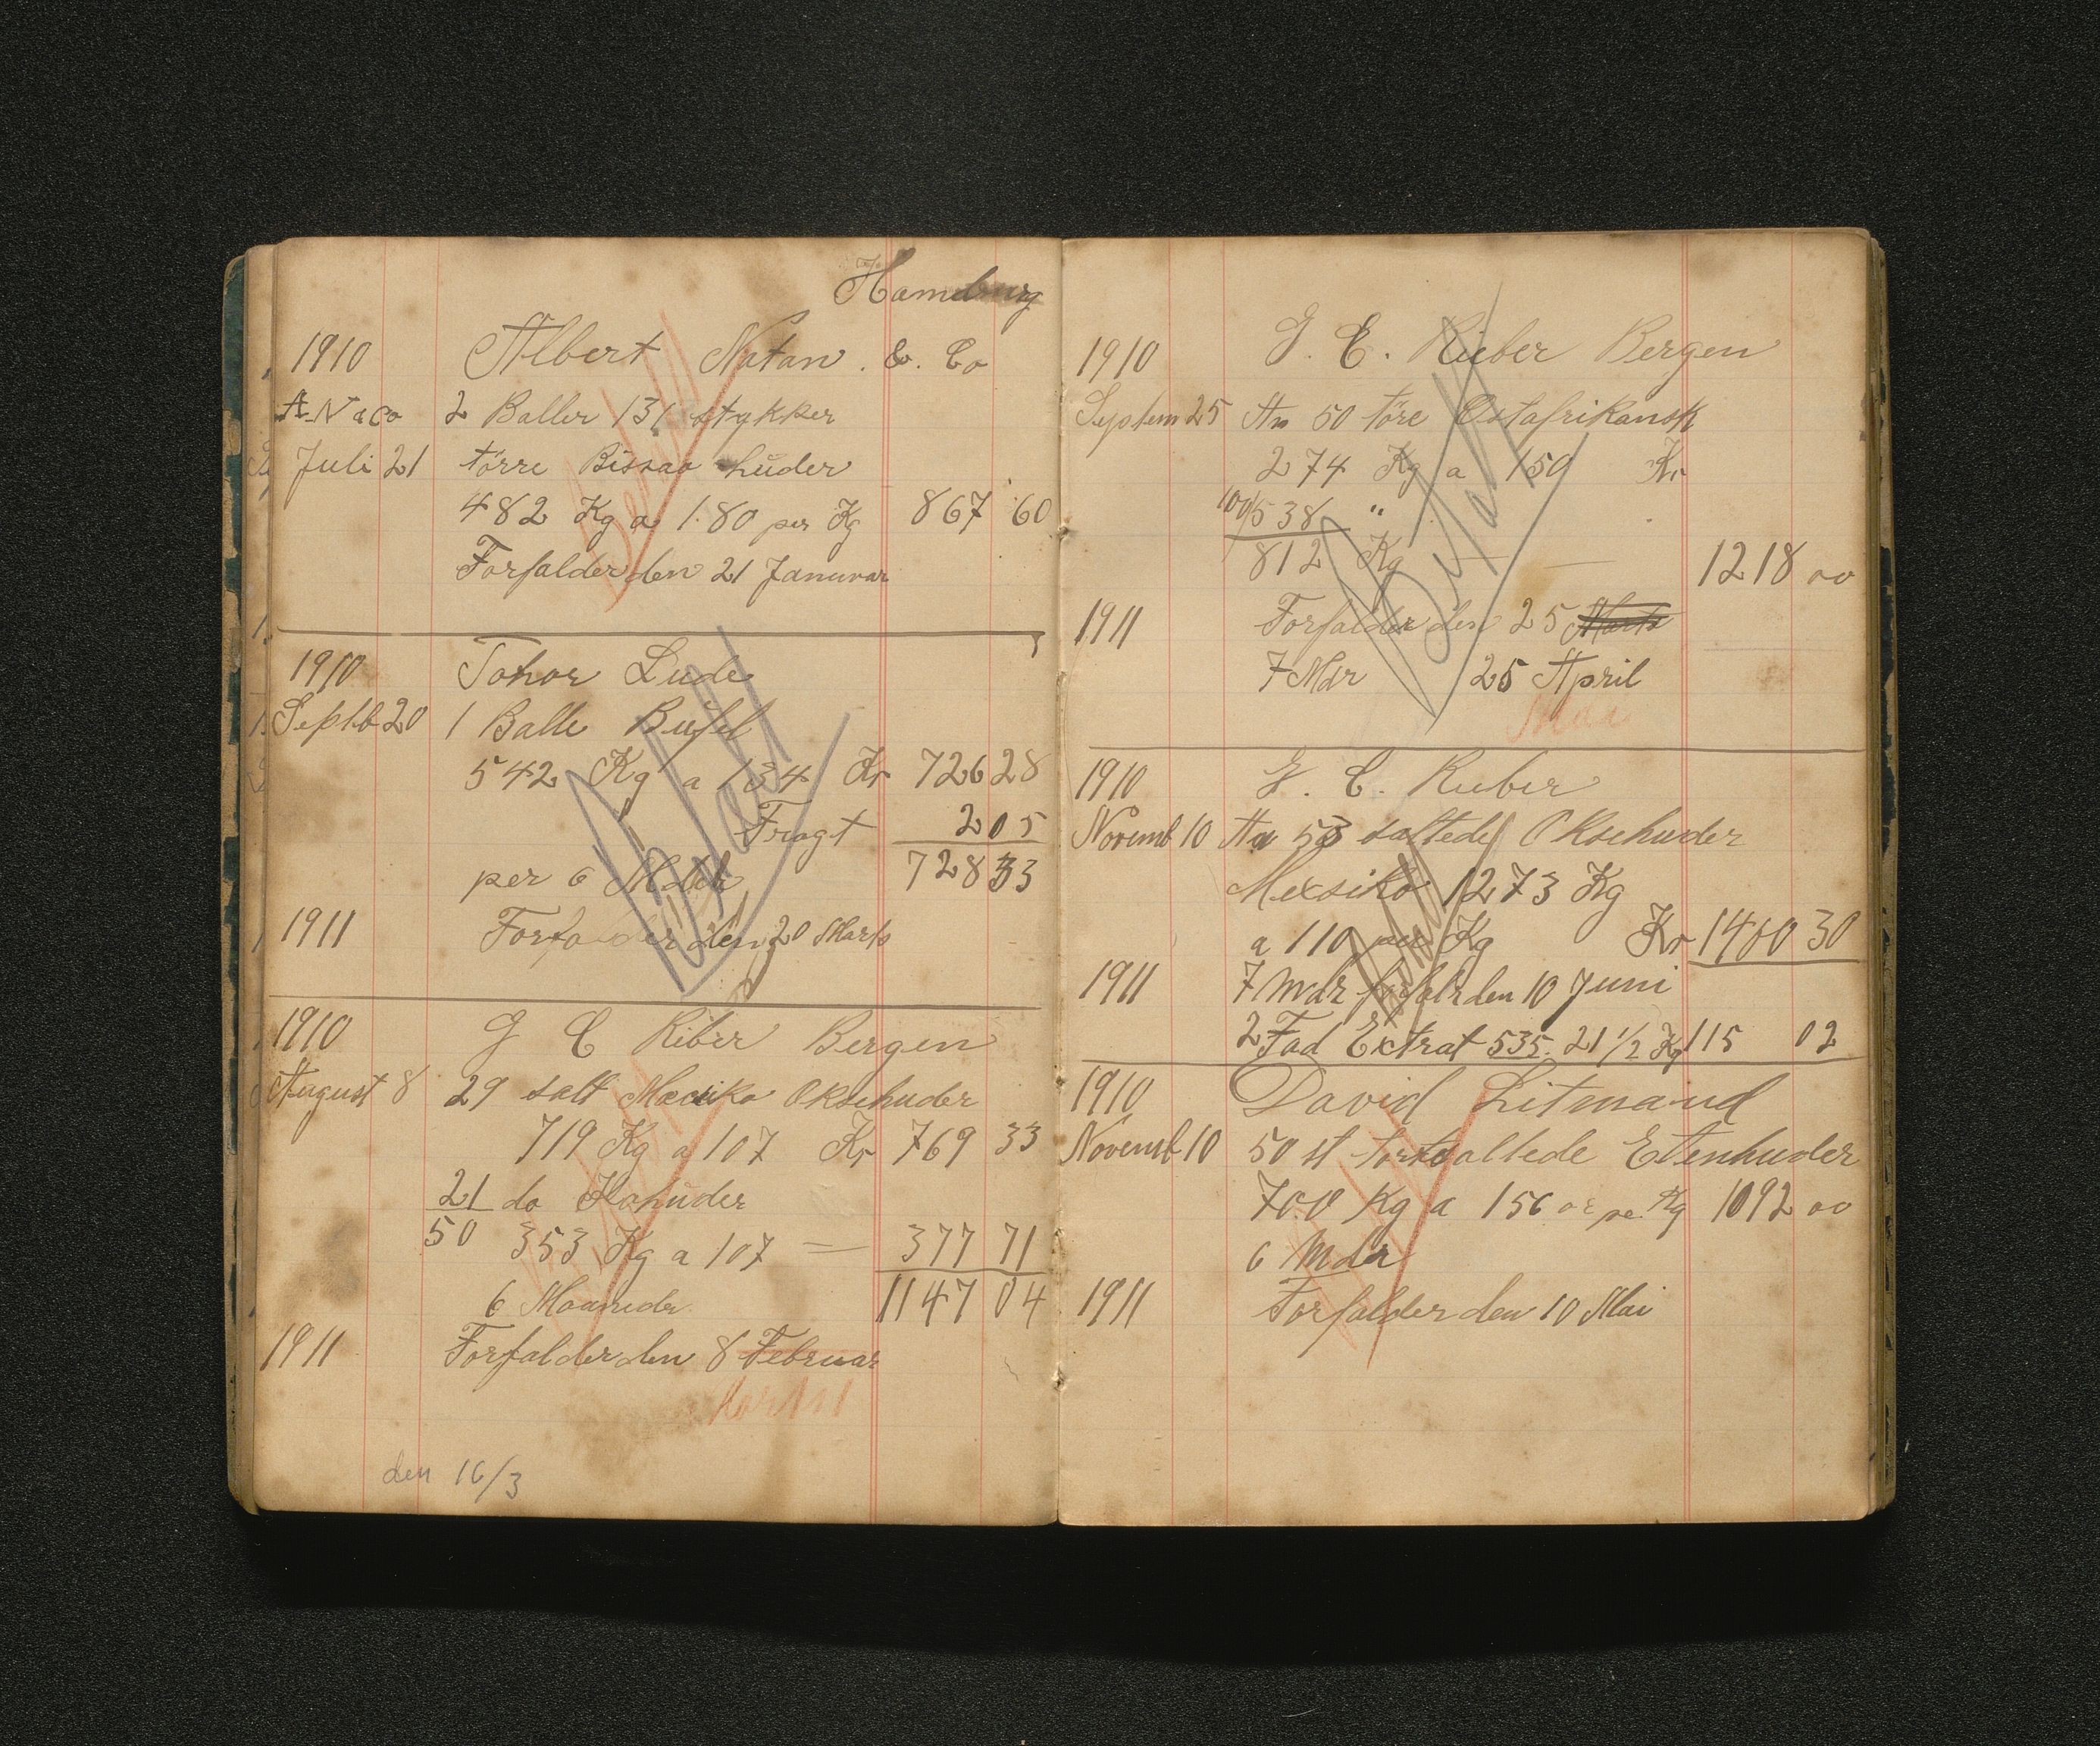 Hamburg
1910 Albert Natan. & Co
A N a Co 2 Baller 131 stykker
Juli 21 törre Bissao huder
482 Kg a 1.80 per Kg 867 60
Forfalder den 21 Januvar
Betalt
1910 Tohor Lude
Septb 20 1 Balle Bufel
542 Kg a 134 Kr 726 28
Fragt 2 05
728 33
per 6
1911 Forfalder den 20 Marts
Betalt
1910 G C Riber Bergen
August 8 29 salt Mexiko Oksehuder
719 Kg a 107 Kr 769 33
21 do Kohuder
50 353 Kg a 107 — 377 71
6 Maaneder 1147 04
1911 Forfalder den 8 Februar
Marts
den 16/3
1910 G. C. Rieber Bergen
System 25 An 50 töre Ostafrikansk
274 Kg a 150 Kr
100/538 "
812 Kg — 1218 00
1911 Forfalder den 25 Marts
7 Mdr 25 April
Mai
Betalt
1910 G. C. Rieber
Novemb 10 An 53 saltede Oksehuder
Mexsiko 1273 Kg
a 110 per Kg Kr 1400 30
1911 7 Mdr forfalr den 10 Juni
2 Fad Extrat 535. 21 1/2 Kg 115 02
1910 David Litmand
Novemb 10 50 st torsaltede Etenhuder
700 Kg a 156 ør pe. Kg 1092 00
6 Mdr
1911 Forfalder den 10 Mai